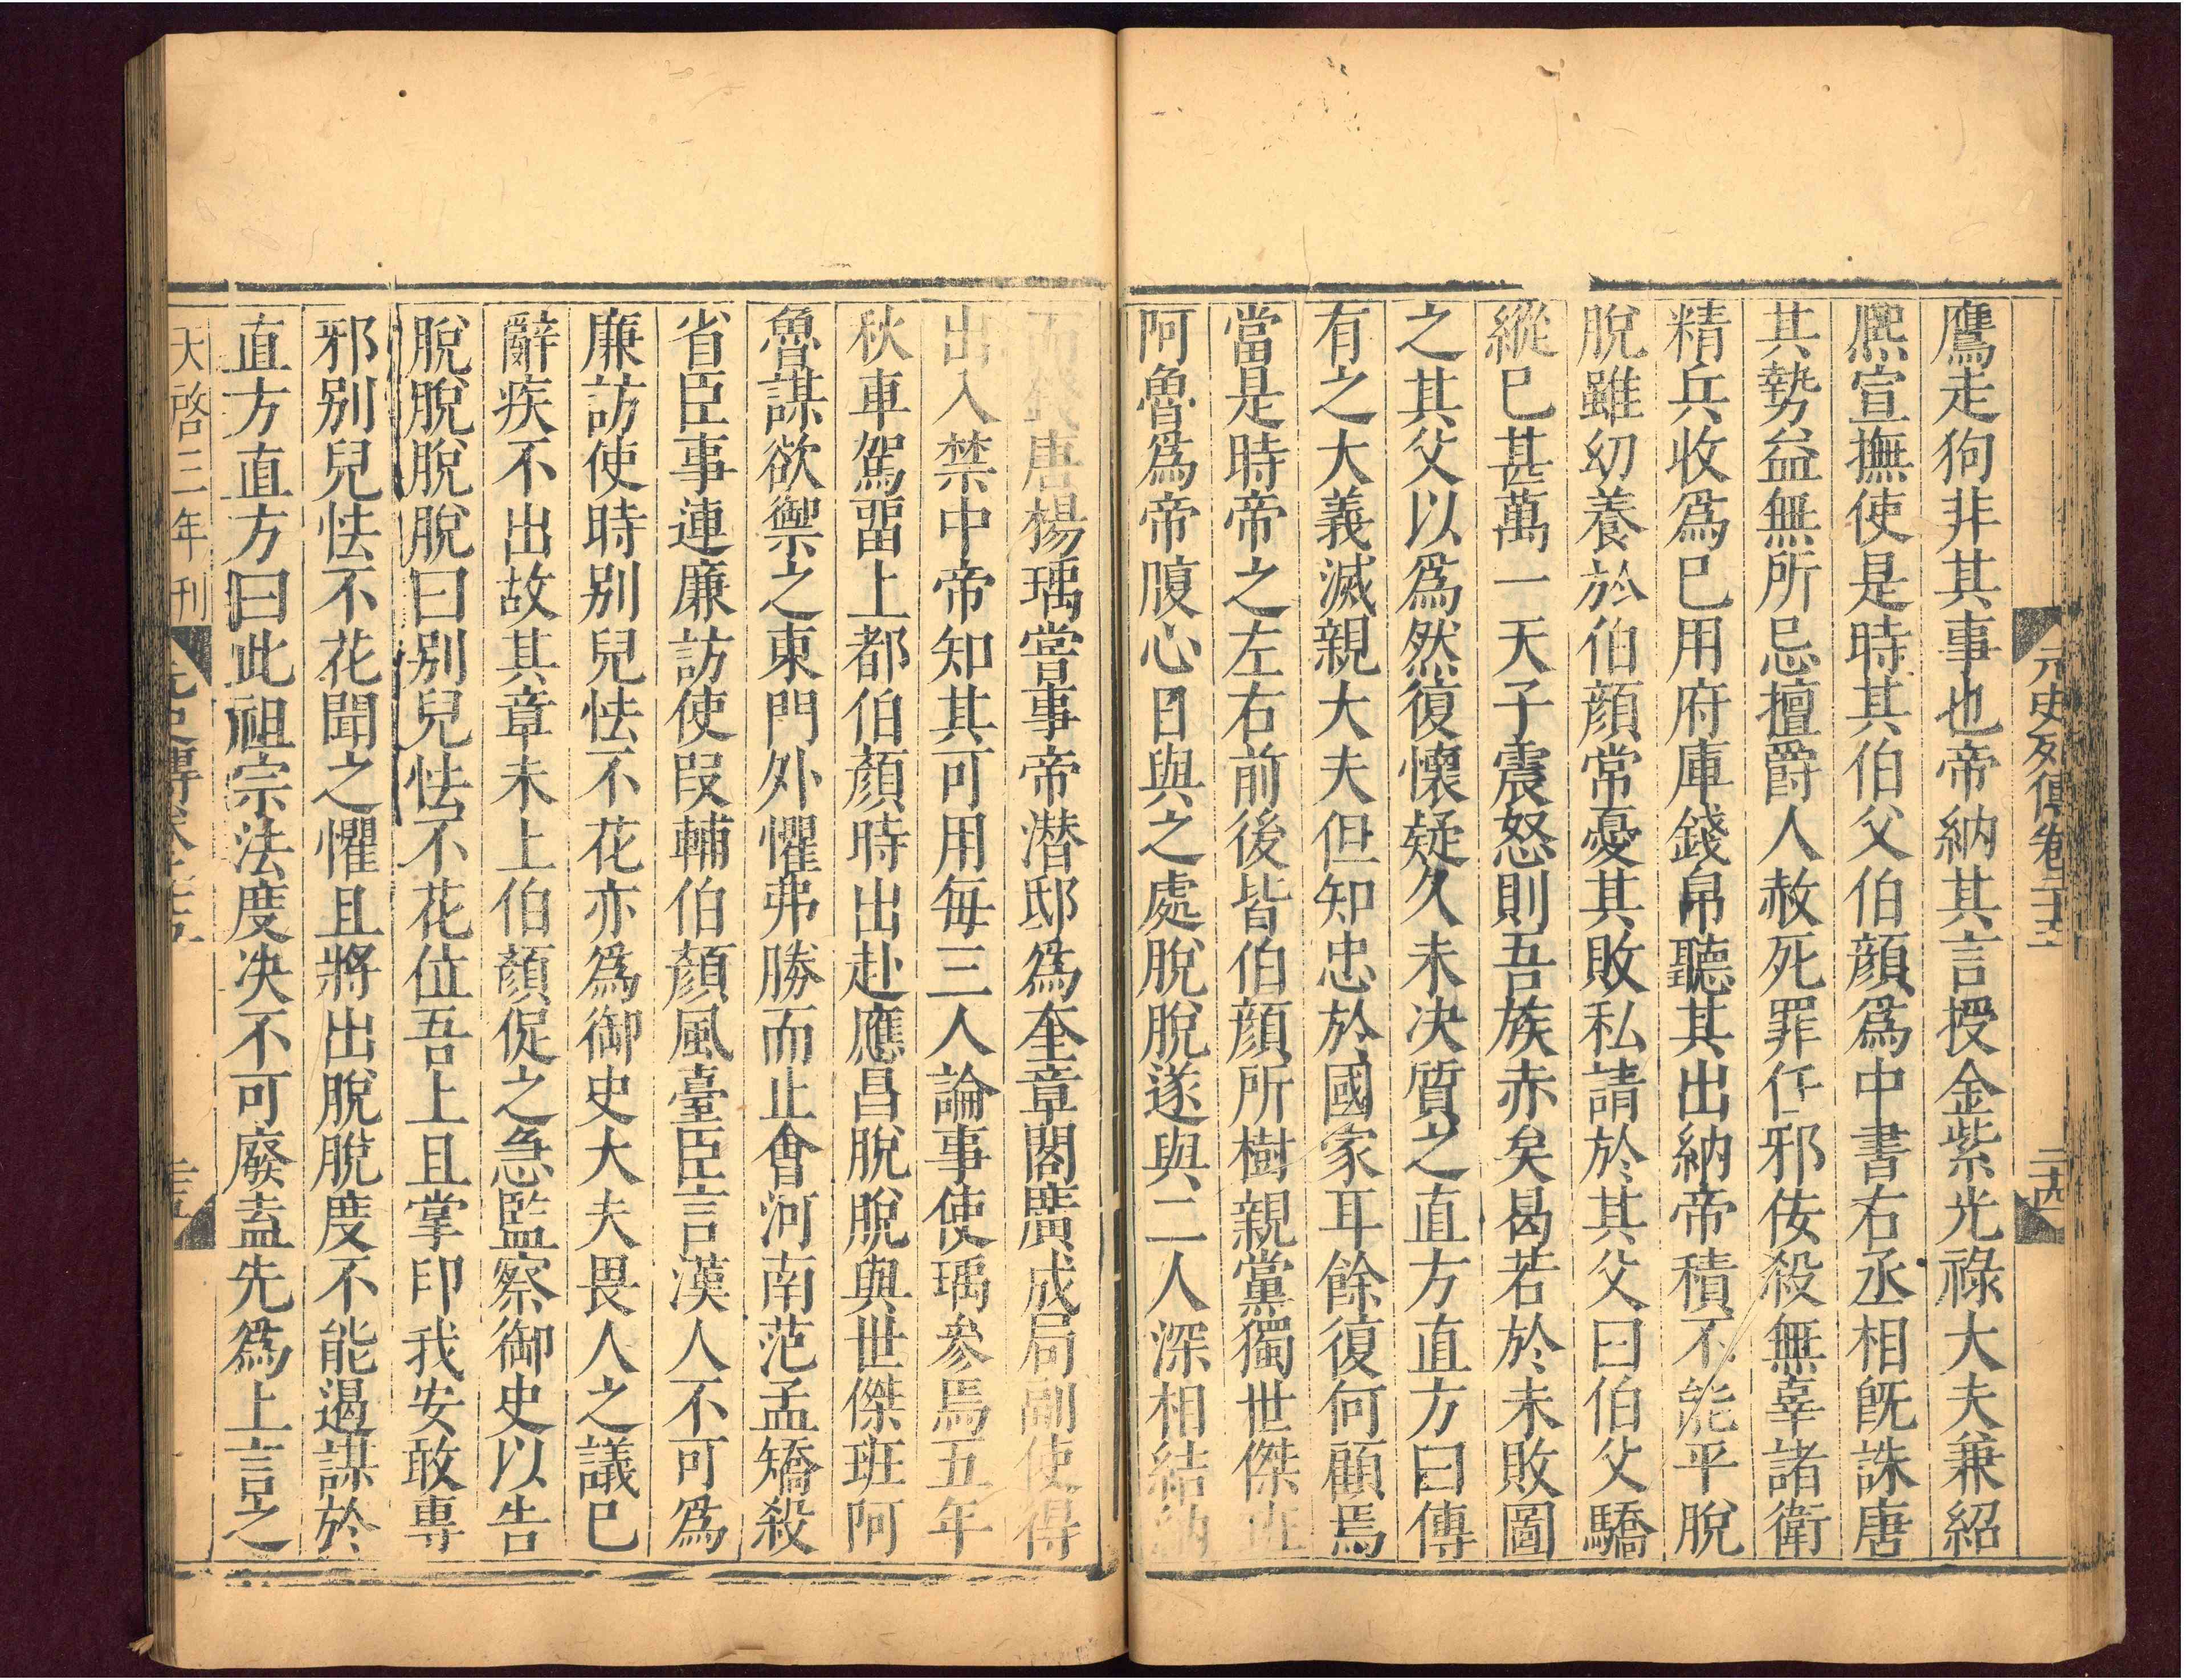 元史列傳卷二十五 二十四
鷹走狗非其事也帝納其言授金紫光祿大夫兼紹
熈宣撫使是時其伯父伯顏爲中書右丞相旣誅唐
其勢益無所忌擅爵人赦死罪任邪佞殺無辜諸衛
精兵收爲已用府庫錢帛聽其出納帝積不能平脫
脫雖幼養於伯顏常憂其敗私請於其父曰伯父驕
縱巳甚萬一天子震怒則吾族赤矣曷若於未敗圖
之其父以爲然復懷疑久未決質之直方直方曰傳
有之大義滅親大夫但知忠於國家耳餘復何顧焉
當是時帝之左右前後皆伯顏所樹親黨獨世傑班
阿魯爲帝腹心日與之處脫脫遂與二人深相結納
錢唐楊瑀嘗事帝潛邸爲奎章閣廣成局副使得
出入禁中帝知其可用每三人論事使瑀參焉五年
秋車駕畱上都伯顏時出赴應昌脫脫與世傑班阿
魯謀欲禦之東門外懼弗勝而止會河南范孟矯殺
省臣事連廉訪使叚輔伯顏風臺臣言漢人不可爲
廉訪使時别兒怯不花亦爲御史大夫畏人之議已
辭疾不出故其章未上伯顏促之急監察御史以告
脫脫脫脫曰别兒怯不花位吾上且掌印我安敢專
邪别兒怯不花聞之懼且將出脫脫度不能遏謀於
直方直方曰此祖宗法度決不可廢盍先爲上言之
天啓三年刊 元史傳卷二十五 二十五